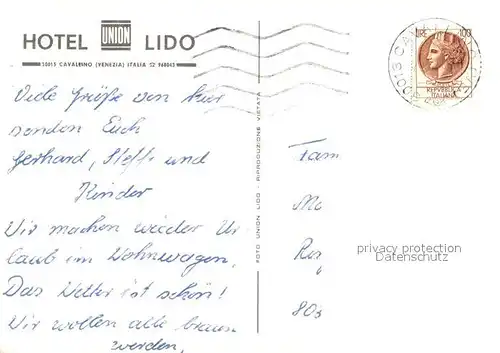 HOTEL UNION LIDO
30013 CAVALLINO (VENEZIA) ITALIA
LIRE 100
REPUBBLICA
ITALIANA
Viele Grüße von hier
senden Euch
Gerhard, Steffi und
Kinder
Wir machen wieder Ur
laub im Wohnwagen,
Das Wetter ist schön!
Wir wollen alle braun
werden,
FOTO UNION LIDO - RIPRODUZIONE VIETATA
Fam
Ros
privacy protection
Datenschutz